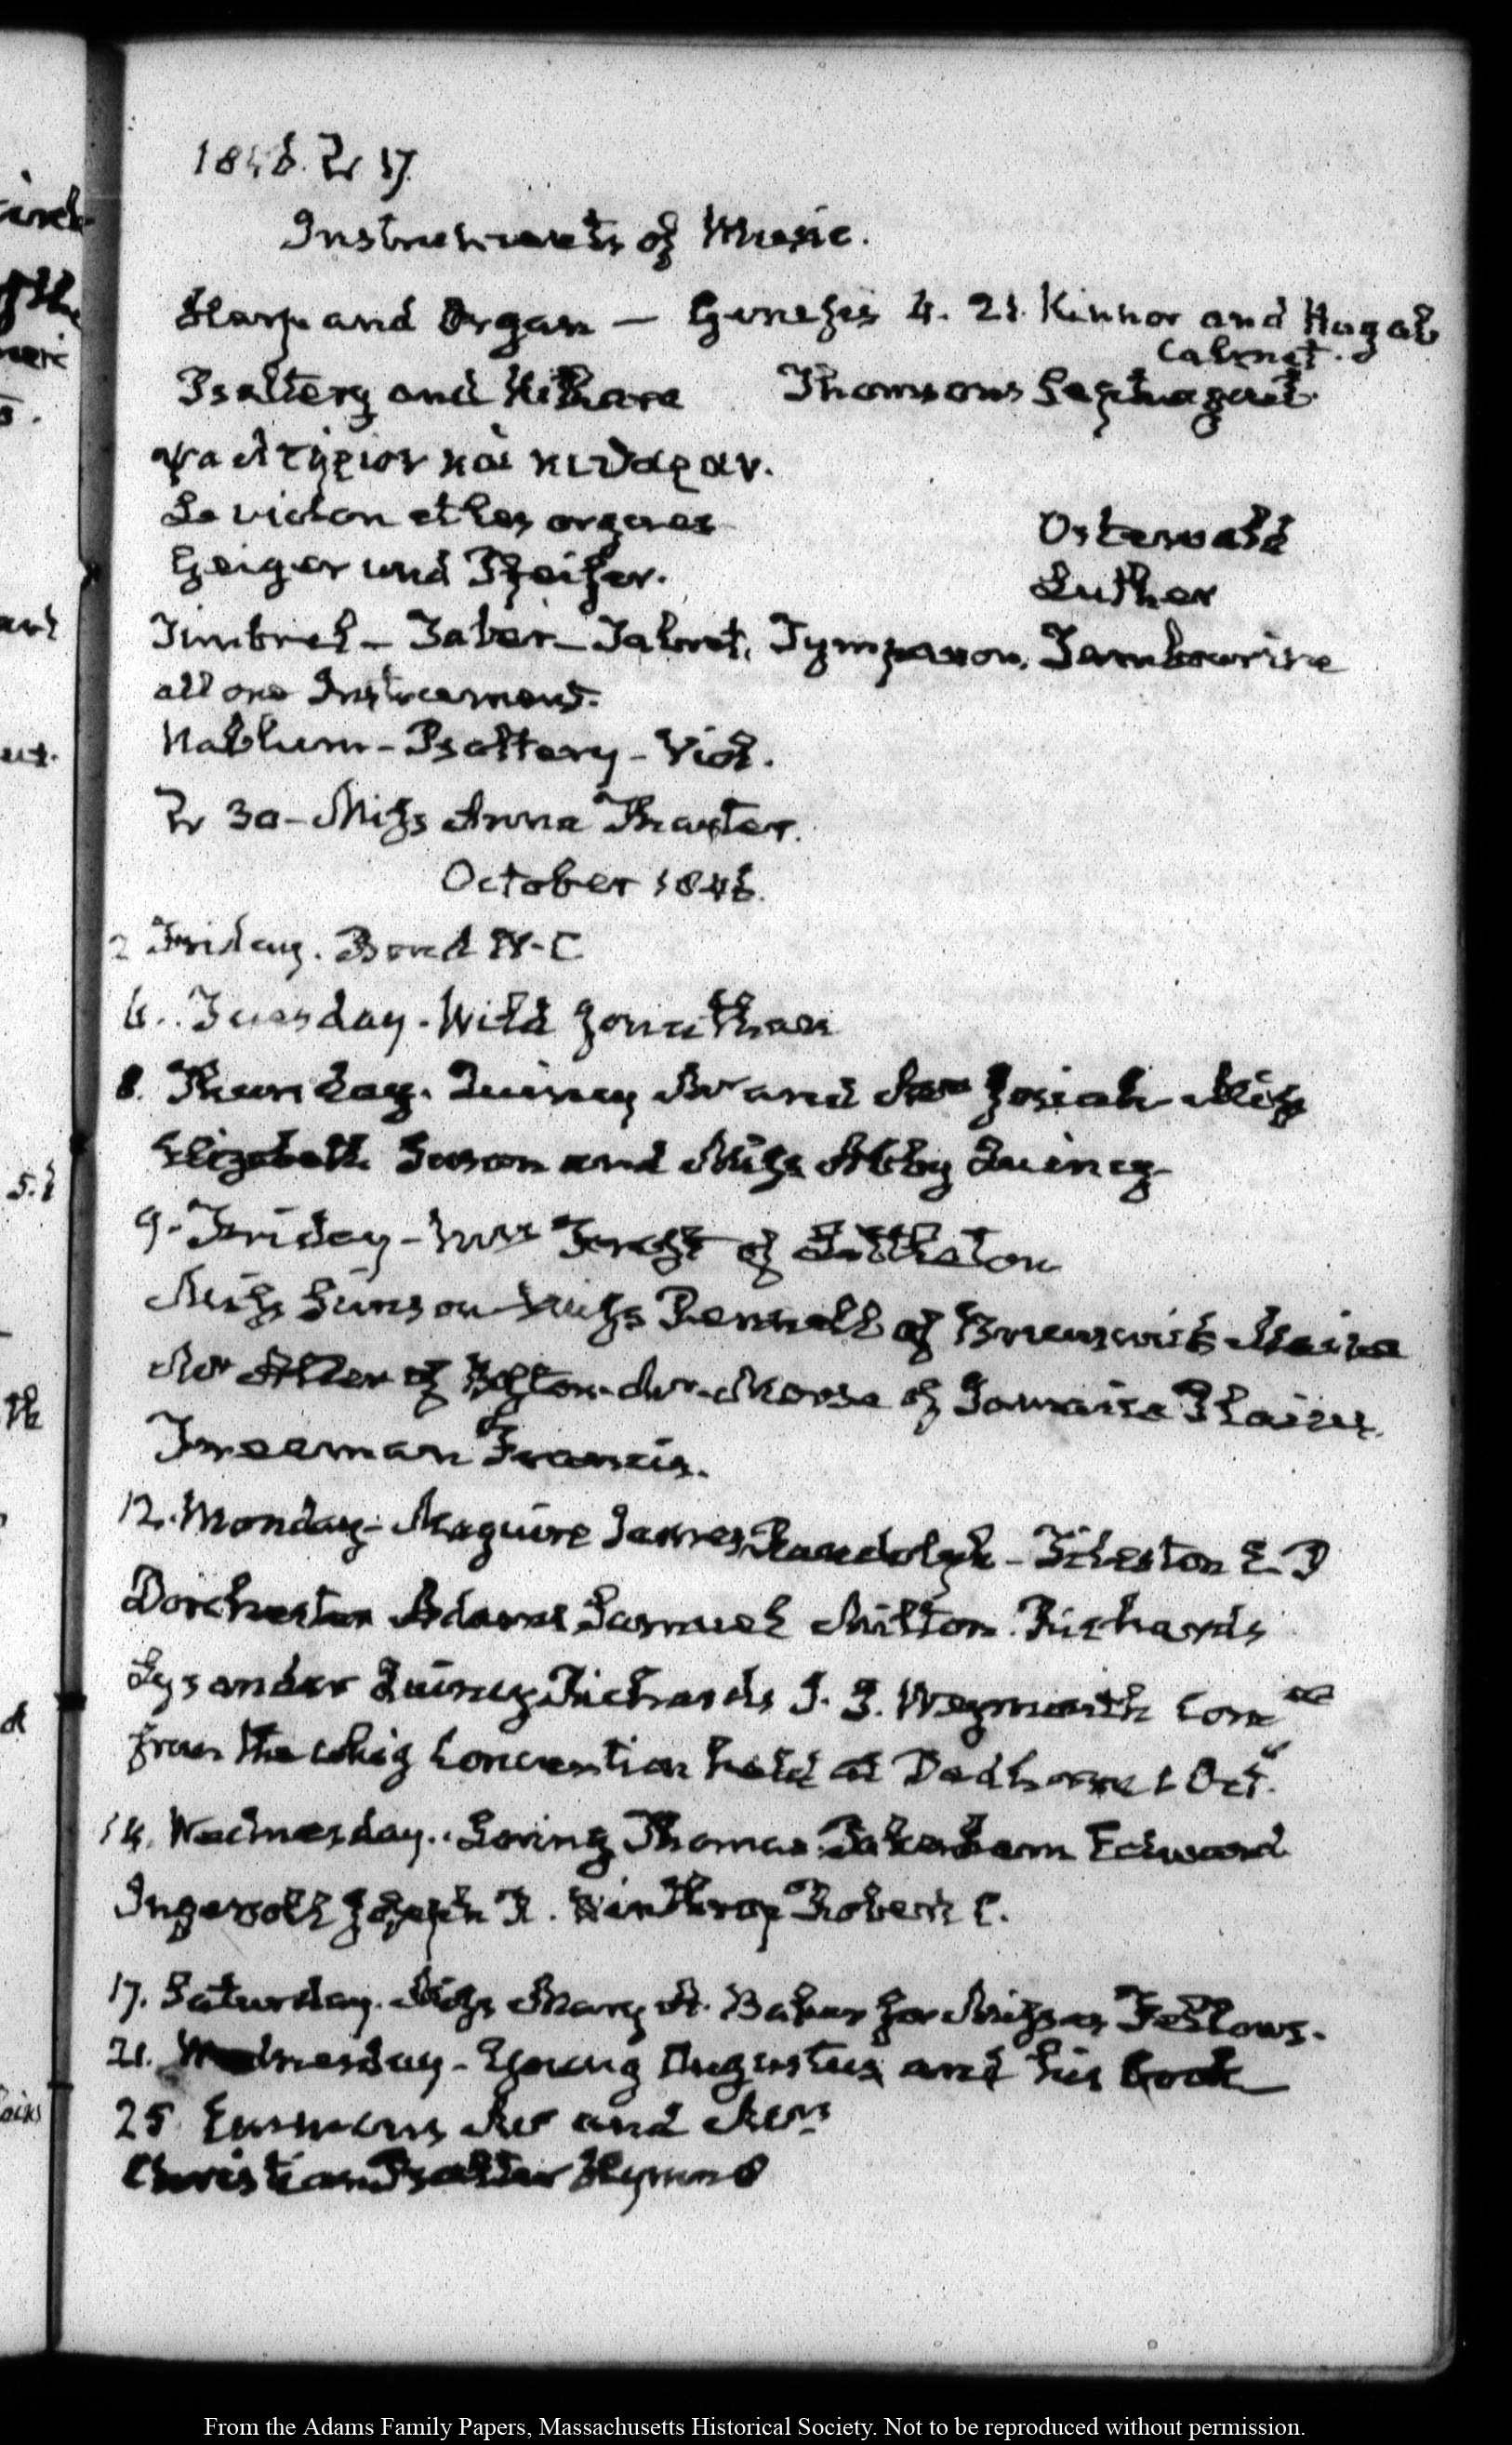 1846. IX 17.
Instruments of Music.
Harp and Organ — Genesis 4. 21. Kinnor and Hugab
Calmet.
Psaltery and Kithara Thomsons Septuagint.
ψαλτήριον καὶ κιθάραν.
Le violon et les orgues Osterwald
Geiger und Pfeifer. Luther
Timbrel – Taber – Tabret, Tympanon, Tambourine
all one Instrument.
Nablum – Psaltery – Viol.
30 – Miss Anna Thaxter.
October 1846.
2 Friday. Bond W. C
6. Tuesday. Wild Jonathan
8. Thursday. Quincy Mr and Mrs Josiah Miss
Elizabeth Susan and Miss Abby Quincy
9. Friday – Mrs of Littleton
Miss Miss of Brunswick Maine
Mr of Boston. Mr Morse of Jamaica Plains.
Freeman Francis.
12. Monday. Maguire James Randolph – Tileston E. P
Dorchester Adams Samuel Milton. Richards
Lysander Quincy Richards J. Weymouth Comee
from the Whig Convention held at Dedham Oct.
14. Wednesday. Loring Thomas Edward
Ingersoll Joseph R. Winthrop Robert C.
17. Saturday. Miss Mary A. Baker for Misses Fellows.
21. Wednesday – Young Augustus and his book
25. Emmons Mr and Mrs
Christian Psalter Hymns
From the Adams Family Papers, Massachusetts Historical Society. Not to be reproduced without permission.